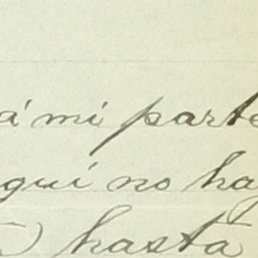 á mi parte
qui no hay
) hasta